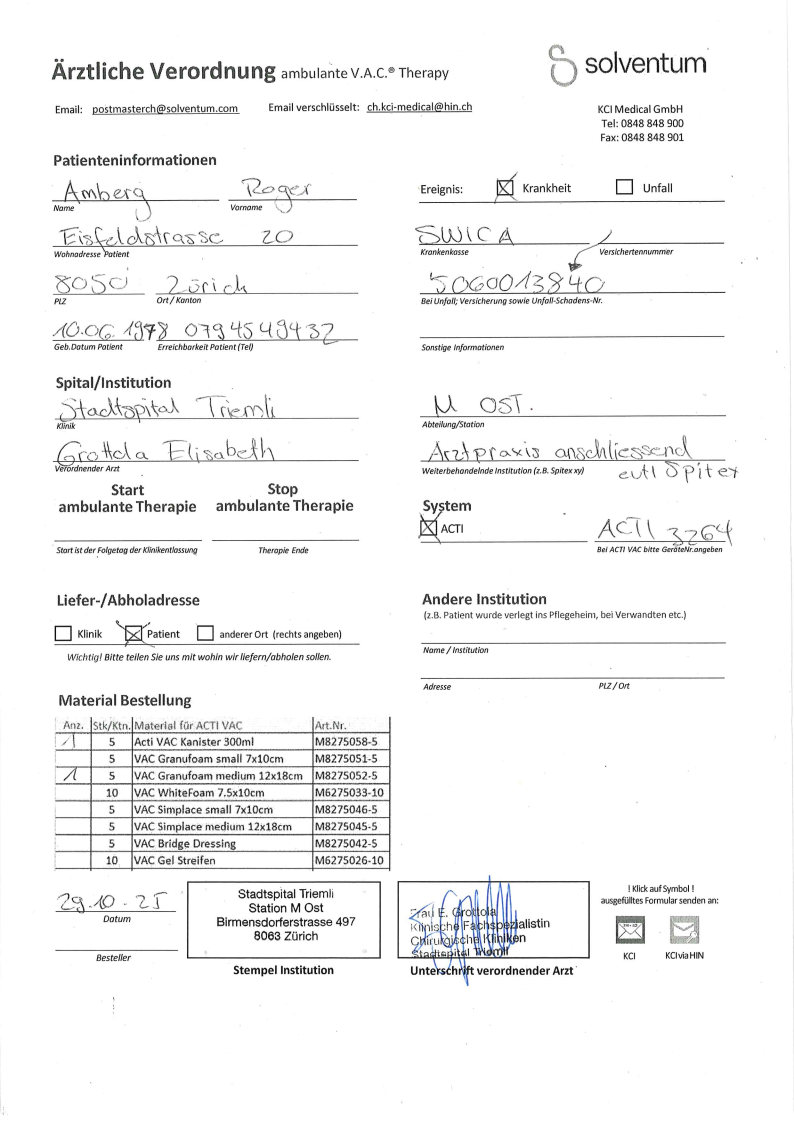 Ärztliche Verordnung ambulante V.A.C.® Therapy
solventum
Email: postmasterch@solventum.com Email verschlüsselt: ch.kci-medical@hin.ch
KCI Medical GmbH
Tel: 0848 848 900
Fax: 0848 848 901
Patienteninformationen
Amberg Roger
Name Vorname
Ereignis: Krankheit Unfall
Eisfeldstrasse 20
Wohnadresse Patient
SWICA /
Krankenkasse Versichertennummer
8050 Zürich
PLZ Ort / Kanton
5060013840
Bei Unfall; Versicherung sowie Unfall-Schadens-Nr.
10.06.1978 0794549432
Geb.Datum Patient Erreichbarkeit Patient (Tel)
Sonstige Informationen
Spital/Institution
Stadtspital Triemli
Klinik
M OST.
Abteilung/Station
Grottola Elisabeth
Verordnender Arzt
Arztpraxis anschliessend
Weiterbehandelnde Institution (z.B. Spitex xy) evtl Spitex
Start ambulante Therapie
Stop ambulante Therapie
Start ist der Folgetag der Klinikentlassung Therapie Ende
System
ACTI ACTI 3264
Bei ACTI VAC bitte GeräteNr.angeben
Liefer-/Abholadresse
Klinik Patient anderer Ort (rechts angeben)
Wichtig! Bitte teilen Sie uns mit wohin wir liefern/abholen sollen.
Andere Institution
(z.B. Patient wurde verlegt ins Pflegeheim, bei Verwandten etc.)
Name / Institution
Adresse PLZ / Ort
Material Bestellung
Anz. Stk/Ktn. Material für ACTI VAC Art.Nr.
1 5 Acti VAC Kanister 300ml M8275058-5
5 VAC Granufoam small 7x10cm M8275051-5
1 5 VAC Granufoam medium 12x18cm M8275052-5
10 VAC WhiteFoam 7.5x10cm M6275033-10
5 VAC Simplace small 7x10cm M8275046-5
5 VAC Simplace medium 12x18cm M8275045-5
5 VAC Bridge Dressing M8275042-5
10 VAC Gel Streifen M6275026-10
29.10.25
Datum
Besteller
Stadtspital Triemli
Station M Ost
Birmensdorferstrasse 497
8063 Zürich
Stempel Institution
Frau E. Grottola
Klinische Fachspezialistin
Chirurgische Kliniken
Stadtspital Triemli
Unterschrift verordnender Arzt
! Klick auf Symbol !
ausgefülltes Formular senden an:
KCI KCI via HIN